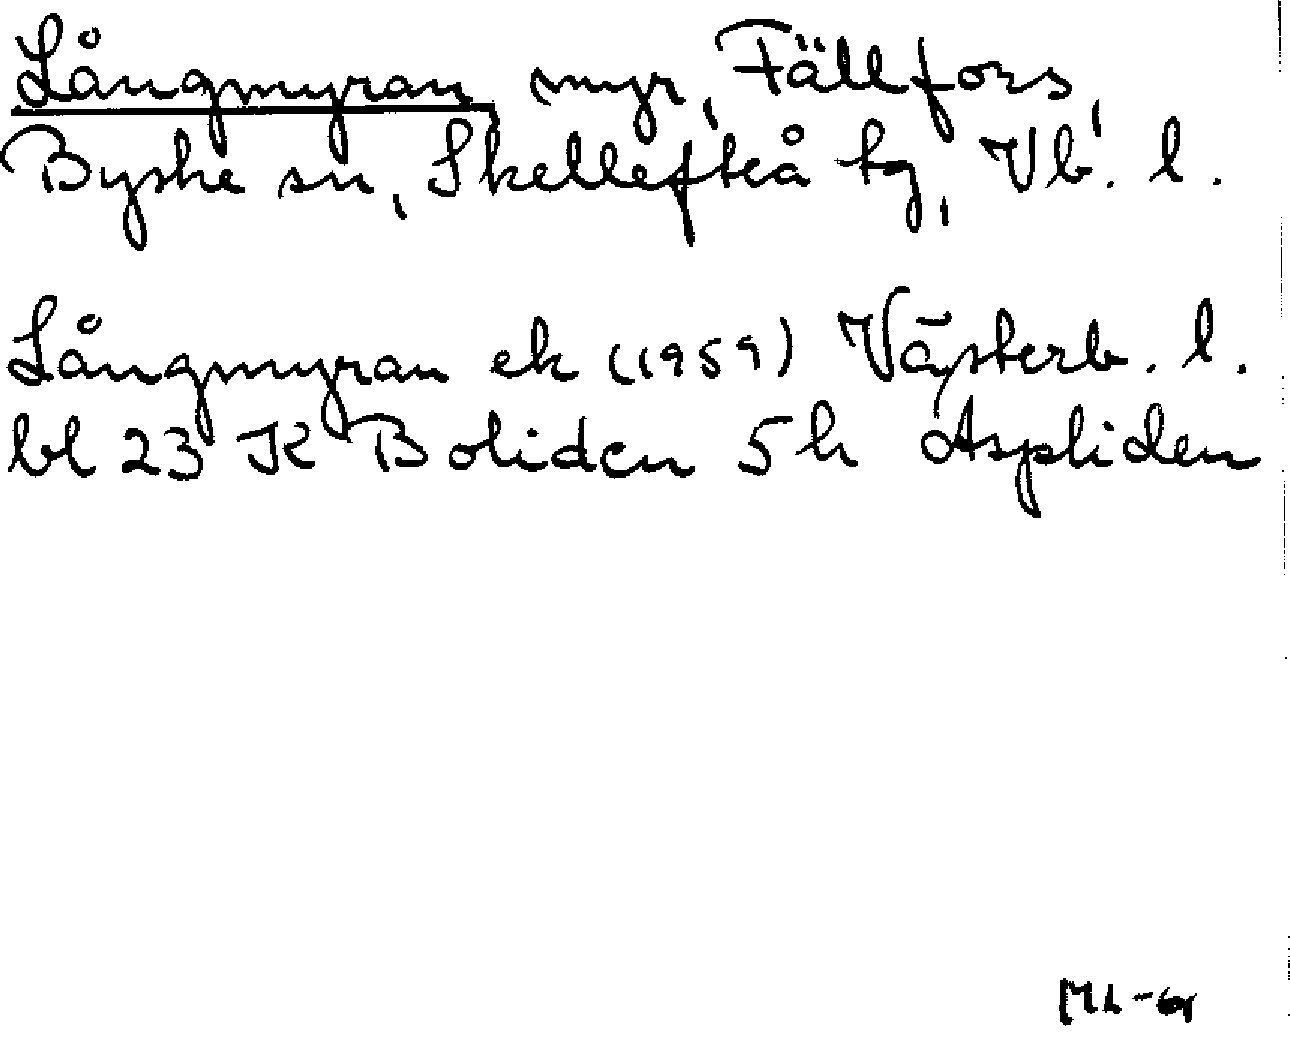 Långmyran myr, Fällfors,
Byske sn, Skellefteå tg, Vb. l.
Långmyran ek (1959) Västerb. l.
bl 23 K Boliden 5h Aspliden